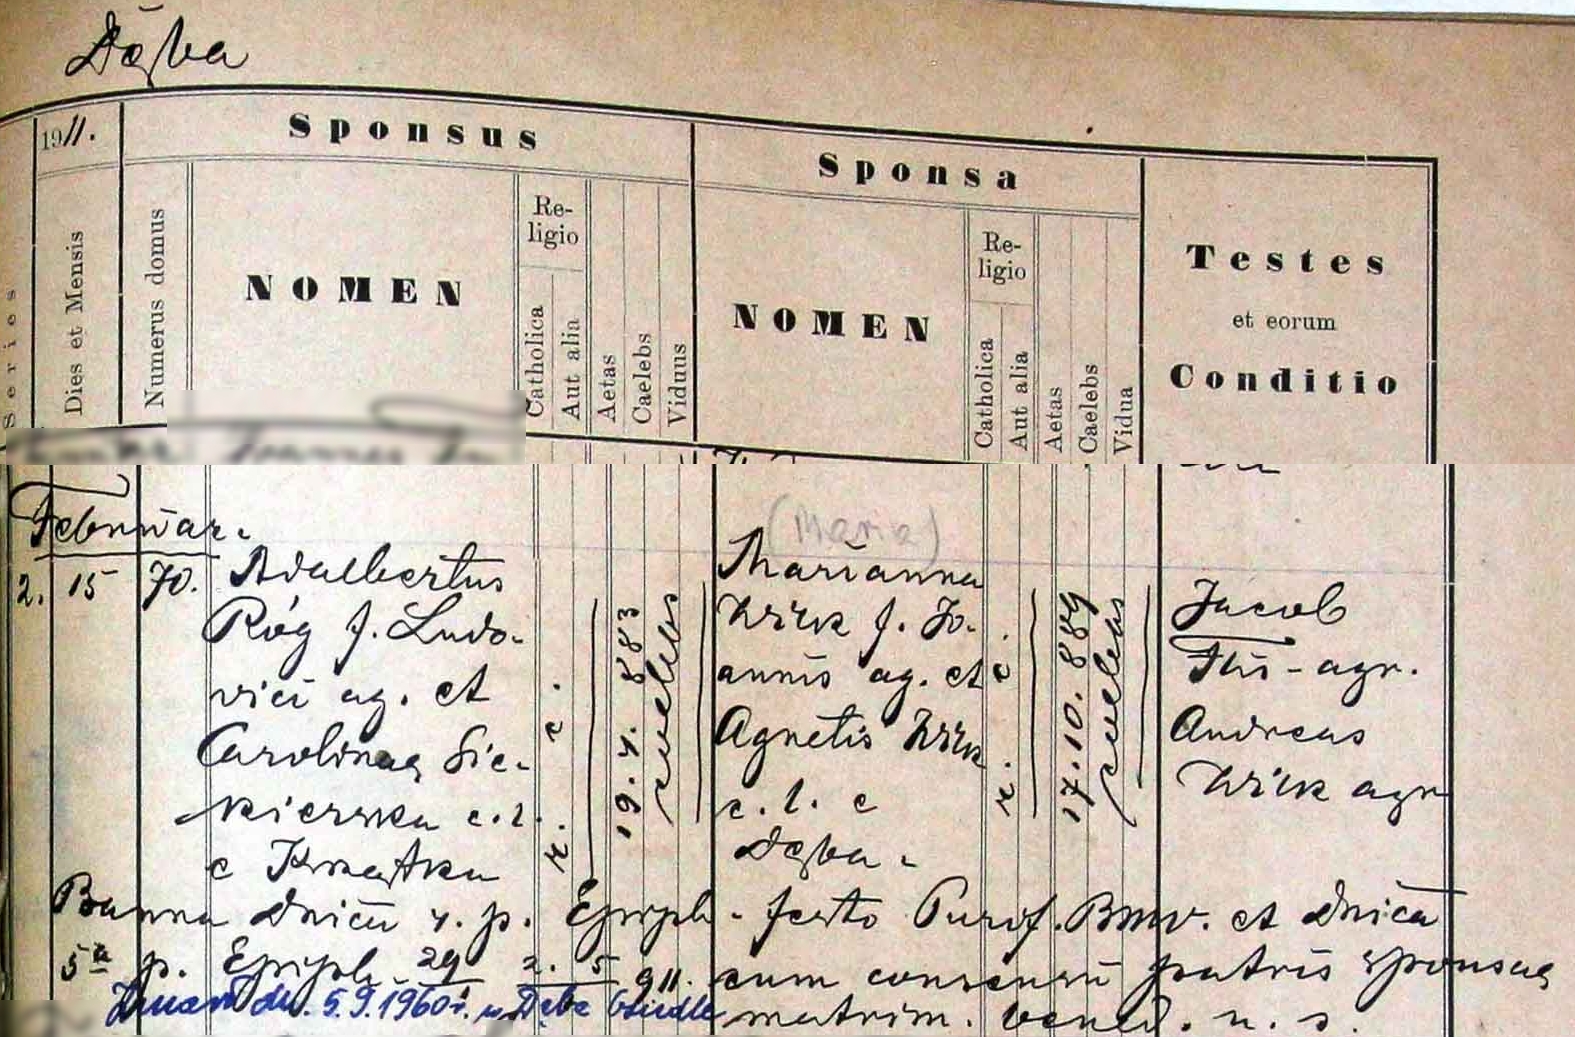 Dęba
1911.
Sponsus
Sponsa
Series
Dies et Mensis
Numerus domus
NOMEN
Re-
ligio
Catholica
Aut alia
Aetas
Caelebs
Viduus
NOMEN
Re-
ligio
Catholica
Aut alia
Aetas
Caelebs
Vidua
Testes
et eorum
Conditio
Februar.
2. 15 70.
Adalbertus
Róg f. Ludo-
vici ag. et
Carolinae Sie-
kierska c. l.
e
r. c.
19. 4. 883
caelebs
(Maria)
Marianna
Wilk f. Jo-
annis ag. et
Agnetis Wilk
c. l. e
Dęba.
r. c.
17. 10. 889
caelebs
Jacob
agr.
Andreas
Wilk agr
Banna Dnica 4. p. Epiph. festo Purif. BMV. et Dnica
5ª p. Epiph. 29 2. 5 911. cum consensu patris sponsae
matrim. bened. n. s.
Zmarł dn. 5.9.1960 r. w Dębe Osiedle